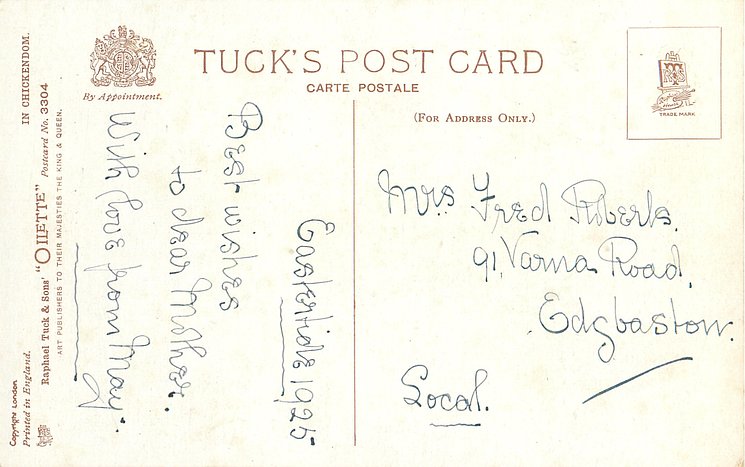 TUCK'S POST CARD
CARTE POSTALE
By Appointment.
(FOR ADDRESS ONLY.)
TRADE MARK
Eastertide 1925
Best wishes
to dear Mother.
With love from May.
Mrs Fred Roberts.
91, Varna Road,
Edgbaston.
Local.
IN CHICKENDOM.
Raphael Tuck & Sons' "OILETTE" Postcard No. 3304
ART PUBLISHERS TO THEIR MAJESTIES THE KING & QUEEN.
Copyright London
Printed in England.